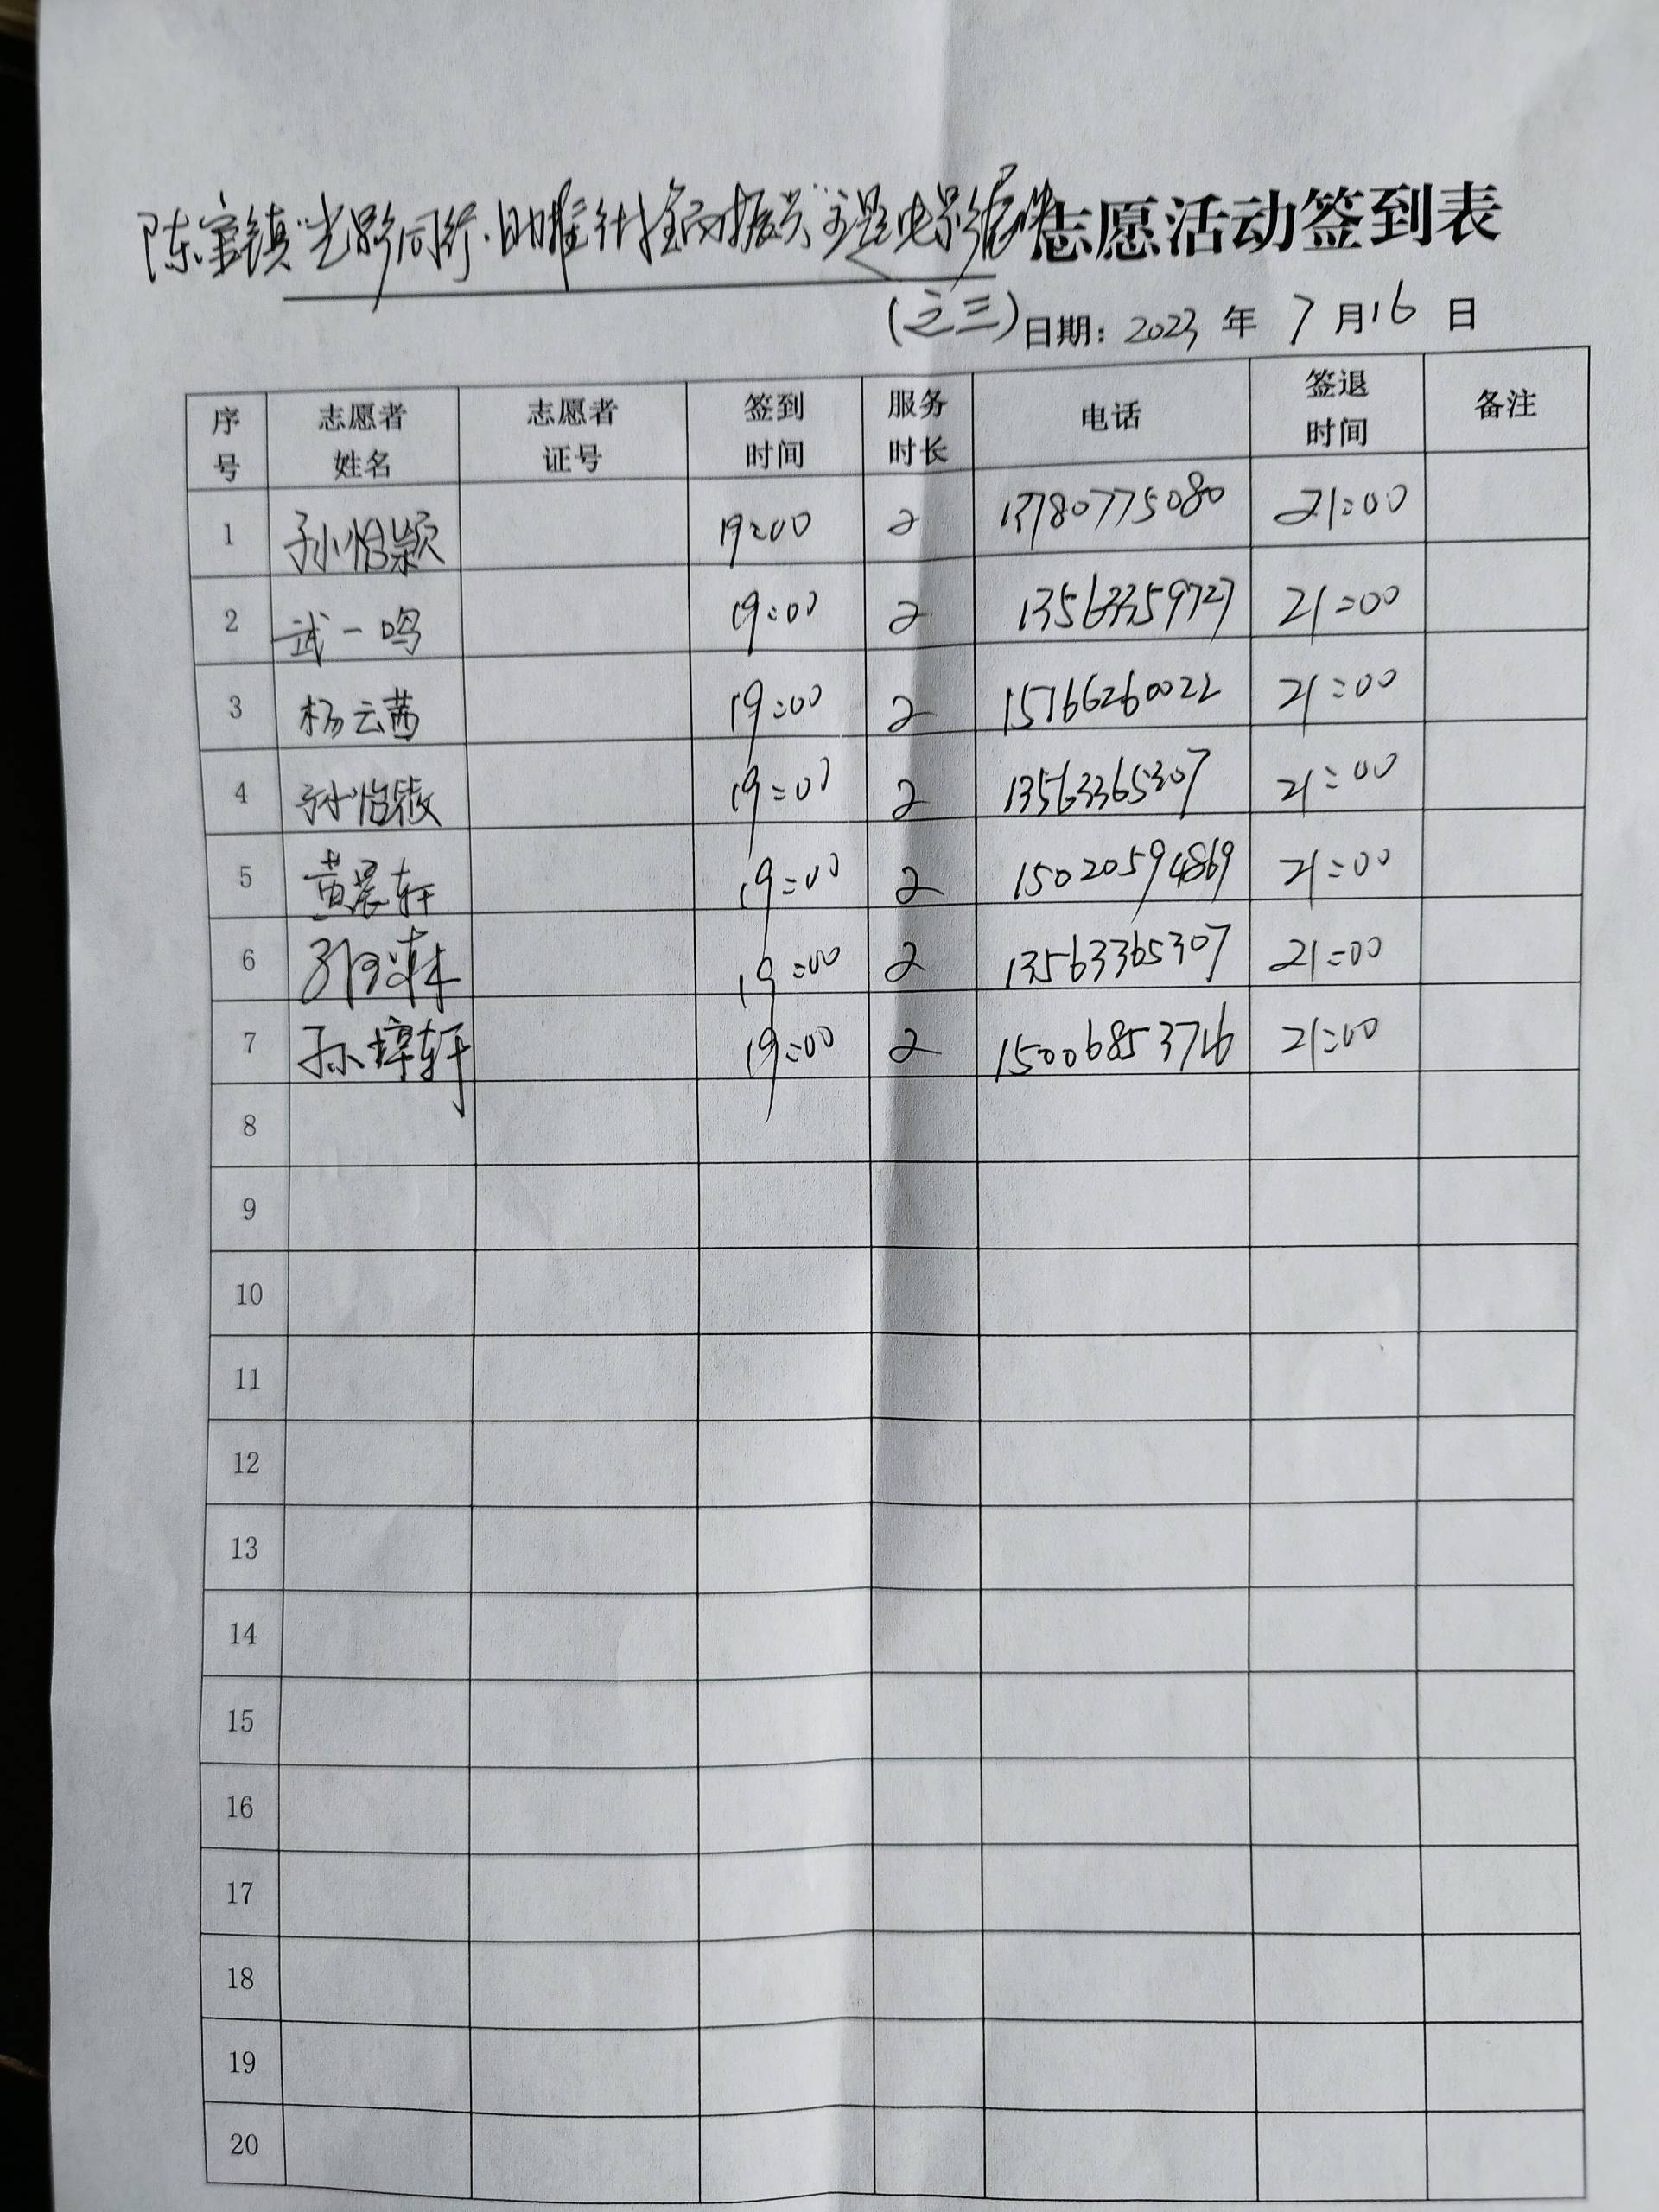 陈疃镇"光影同行·助推乡村全面振兴"主题电影展映志愿活动签到表
(之三) 日期：2023 年 7 月 16 日
序号 志愿者姓名 志愿者证号 签到时间 服务时长 电话 签退时间 备注
1 孙怡颖 19:00 2 13780775080 21:00
2 武一鸣 19:00 2 13563359727 21:00
3 杨云茜 19:00 2 15766260022 21:00
4 孙怡 19:00 2 13563365307 21:00
5 黄晨轩 19:00 2 15020594869 21:00
6 19:00 2 13563365307 21:00
7 孙梓轩 19:00 2 21:00
8
9
10
11
12
13
14
15
16
17
18
19
20